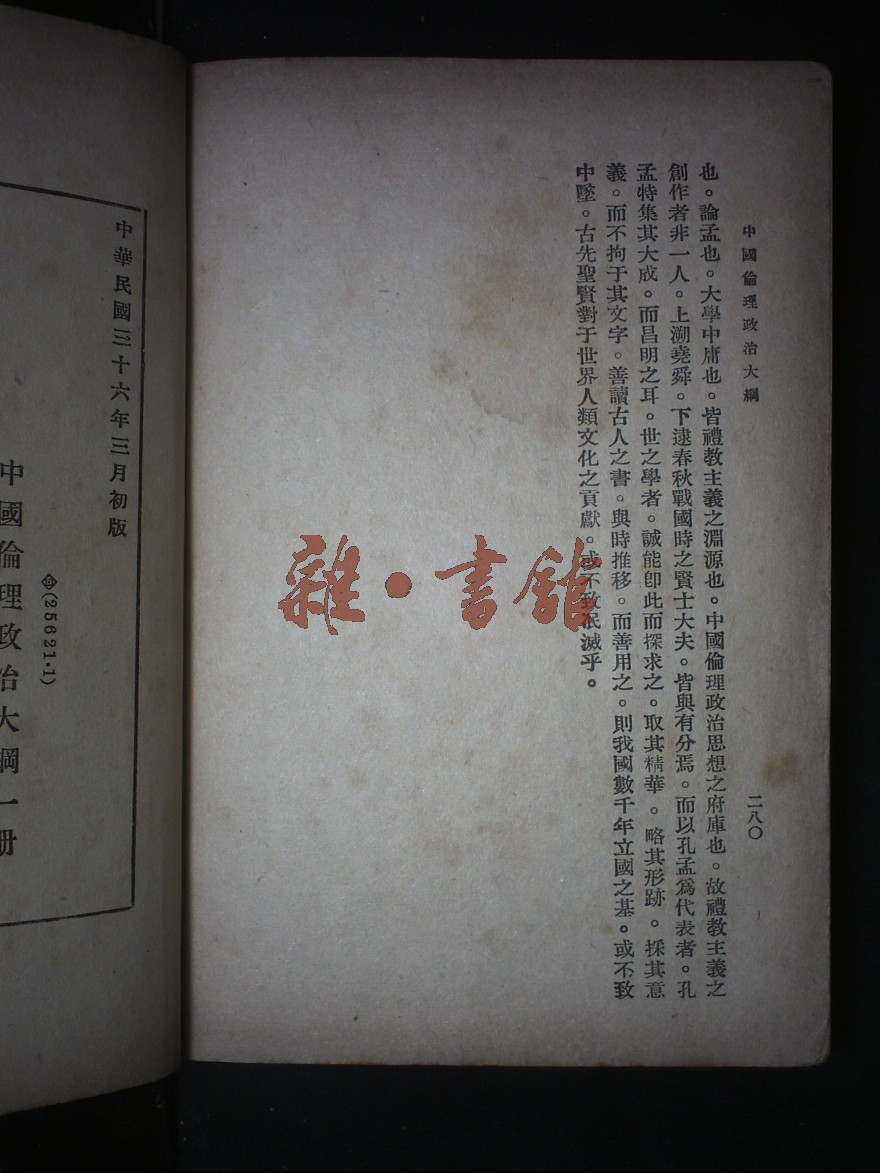 中國倫理政治大綱
二八〇
也。論孟也。大學中庸也。皆禮教主義之淵源也。中國倫理政治思想之府庫也。故禮教主義之
創作者非一人。上溯堯舜。下逮春秋戰國時之賢士大夫。皆與有分焉。而以孔孟爲代表者。孔
孟特集其大成。而昌明之耳。世之學者。誠能卽此而探求之。取其精華。略其形跡。採其意
義。而不拘于其文字。善讀古人之書。與時推移。而善用之。則我國數千年立國之基。或不致
中墜。古先聖賢對于世界人類文化之貢獻。或不致泯滅乎。
雜·書館
中華民國三十六年三月初版
(25621.1)
中國倫理政治大綱一册